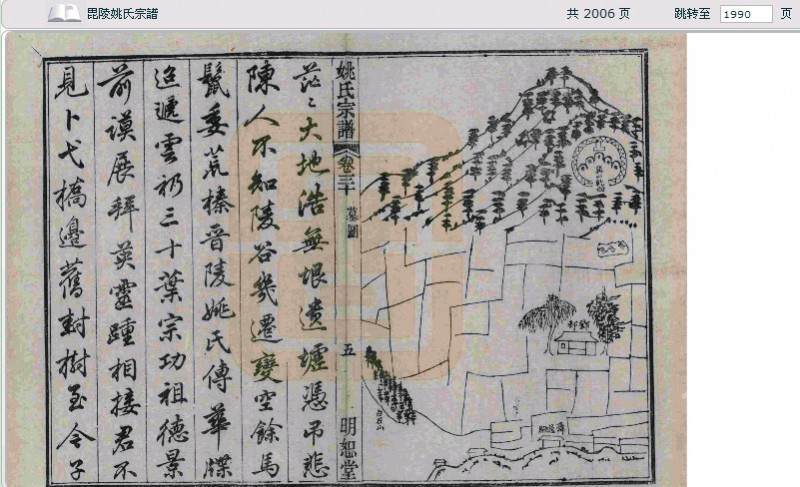 毘陵姚氏宗譜
共 2006 页
跳转至 1990 页
白石山
姚氏宗譜
卷三十
墓圖
五
明恕堂
茫〻大地浩無垠遺壚憑吊悲
陳人不知陵谷幾遷變空餘馬
鬛委荒榛晉陵姚氏傳華牒
迢遞雲礽三十葉宗功祖德景
前謨展拜英靈踵相接君不
見卜弋橋邊舊封樹至今子